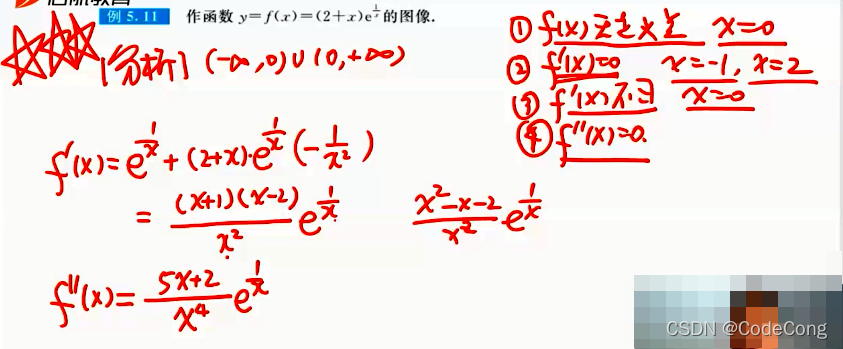 启航教育
例 5.11 作函数 y=f(x)=(2+x)e^{1/x}的图像.
[分析] (-∞,0)∪(0,+∞)
① f(x)无定义点 x=0
② f'(x)=0 x=-1, x=2
③ f'(x)不∃ x=0
④ f''(x)=0.
f'(x)=e^{1/x}+(2+x)·e^{1/x}(-1/x²)
=(x+1)(x-2)/x² e^{1/x} x²-x-2/x² e^{1/x}
f''(x)=5x+2/x⁴ e^{1/x}
CSDN @CodeCong